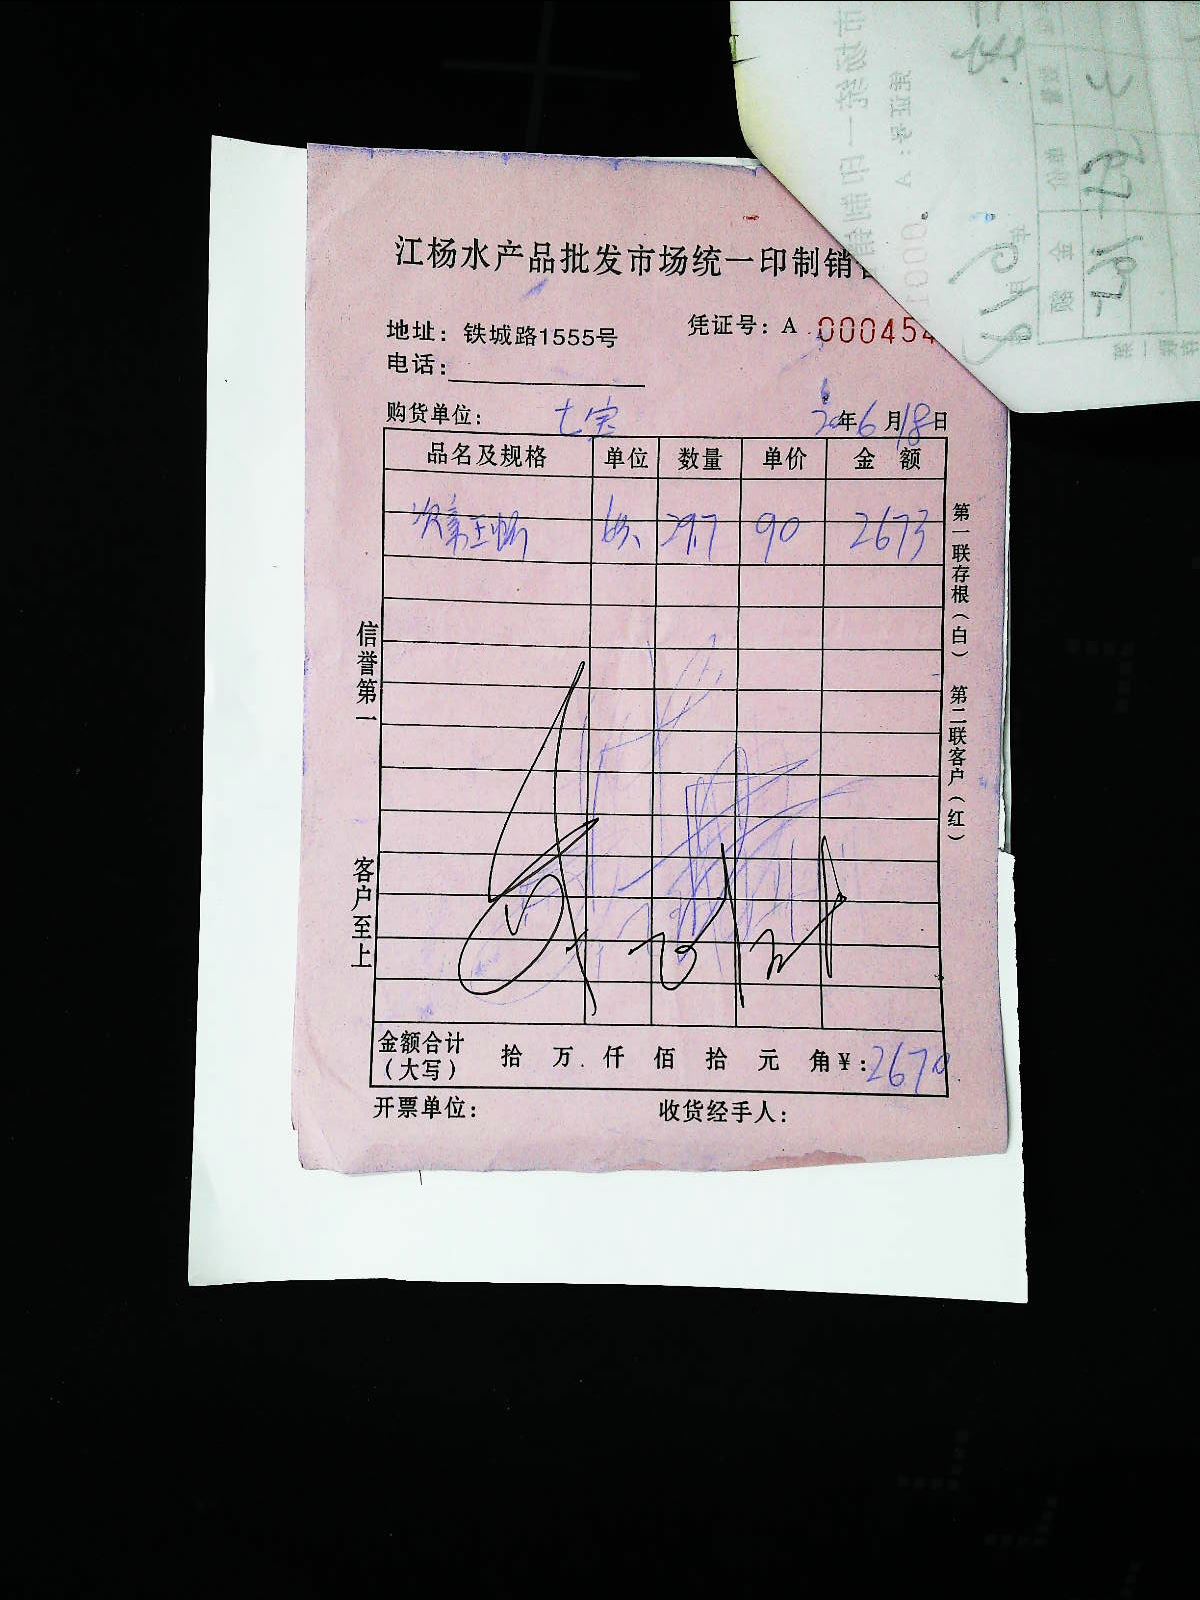 江杨水产品批发市场统一印制销
地址：铁城路1555号
凭证号：A 000454
电话：
购货单位：七宝
20年6月18日
品名及规格 单位 数量 单价 金额
29.7 90 2673
信誉第一
客户至上
第一联存根（白） 第二联客户（红）
金额合计（大写） 拾 万 仟 佰 拾 元 角 ¥：2670
开票单位： 收货经手人：